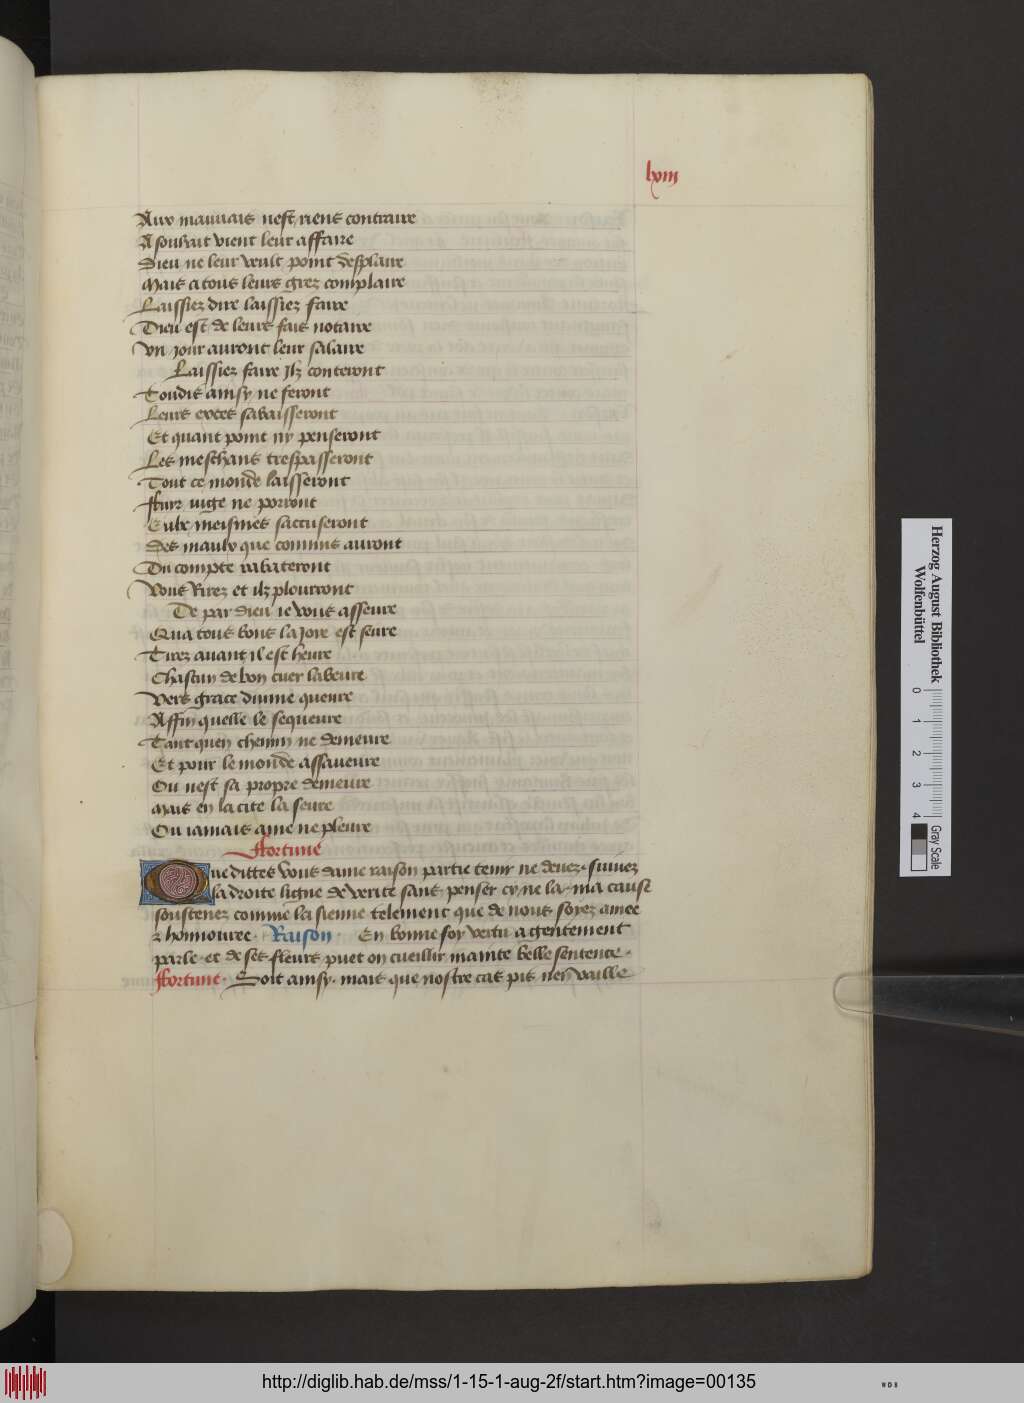 lxiii
Aux mauuais nest riens contraire
A souhait vient leur affaire
Dieu ne leur veult point desplaire
Mais a tous leurs grez complaire
Laissiez dire laissiez faire
Dieu est de leurs fais notaire
Vn jour auront leur salaire
Laissiez faire Ilz conteront
Toudis ainsy ne feront
Leurs exces sabaisseront
Et quant point ny penseront
Les meschans trespasseront
Tout ce monde laisseront
ne porront
Eulx meismes saccuseront
Des maulx que commis auront
Du compte rabateront
Vous Rirez et ilz plourront
De par dieu ie vous asseure
Qua tous bons la joye est seure
Tirez auant il est heure
Chascun de bon cuer labeure
Vers grace diuine queure
Affin quelle le sequeure
Tant quen chemin ne demeure
Et pour le monde assaueure
Ou nest sa propre demeure
Mais en la cite la seure
Ou iamais ame ne pleure
Fortune
Que dittes vous dame raison partie tenir ne deuez. suiuez
la droite ligne de verite sans penser cy ne la. ma cause
soustenez comme la sienne telement que de nous soyez amee
& honnouree. Raison. En bonne foy vertu a gentement
parle. et de ses fleurs puet on cueillir mainte belle sentence.
Fortune. Soit ainsy. mais que nostre cas pis nen vaille
Herzog August Bibliothek
Wolfenbüttel
0 1 2 3 4
Gray Scale
http://diglib.hab.de/mss/1-15-1-aug-2f/start.htm?image=00135
WDB